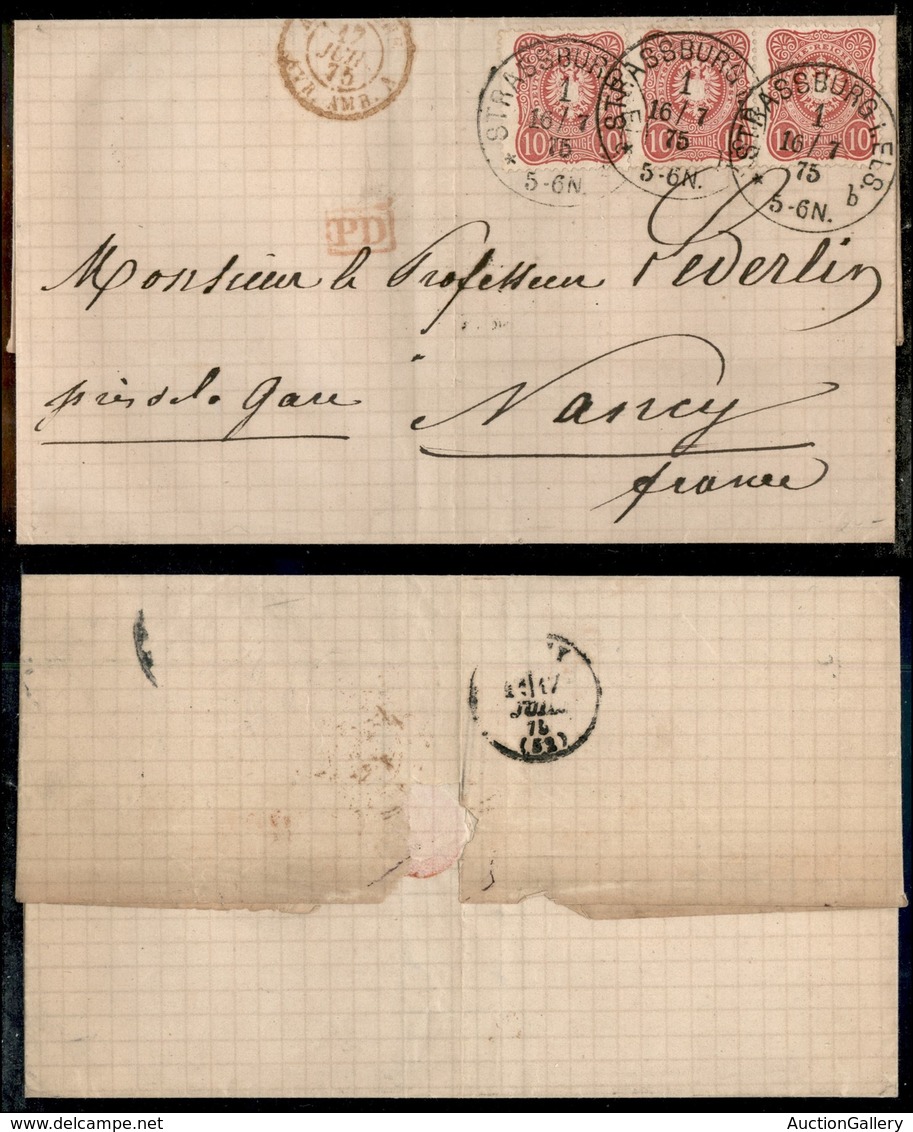 17
JUIL
75
AMB. A
STRASSBURG
1
16/7
75
5-6N.
10 PFENNIGE 10
STRASSBURG
1
16/7
75
5-6N.
10 PFENNIGE 10
STRASSBURG I. ELS.
1
16/7
75
5-6N.
b.
REICH
10 PFENNIGE 10
PD
Monsieur le Professeur Oederlin
près de la Gare
Nancy
france
17
JUIL.
75
(52)
AuctionGallery